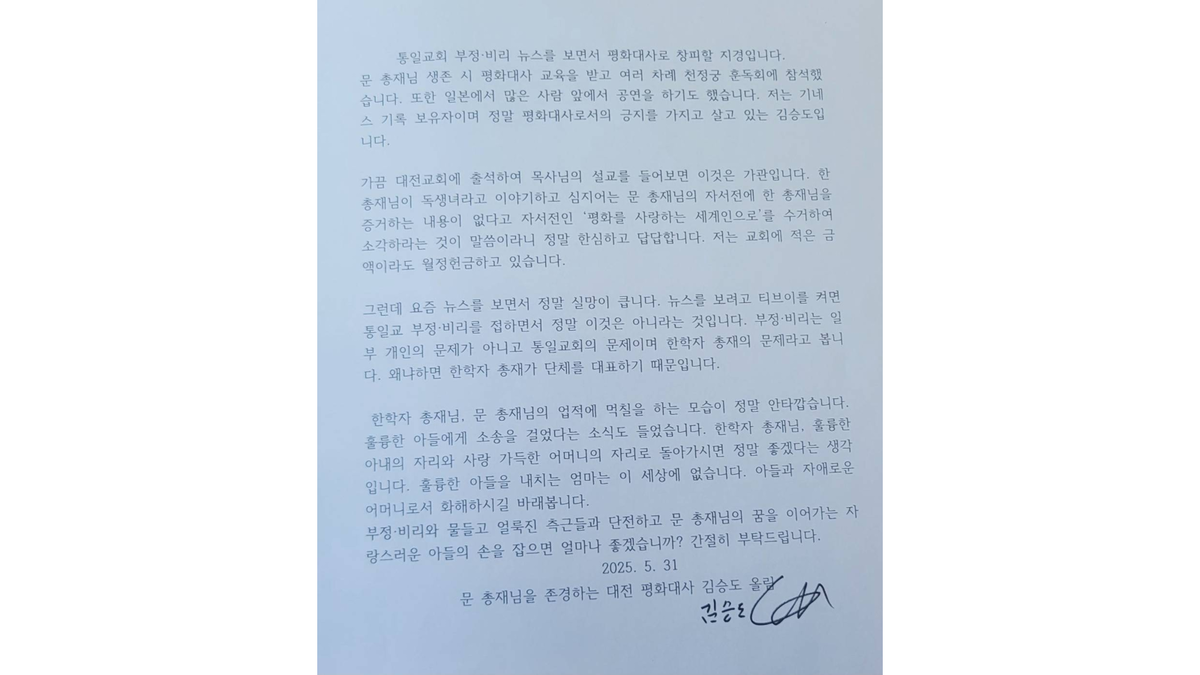 통일교회 부정·비리 뉴스를 보면서 평화대사로 창피할 지경입니다.
문 총재님 생존 시 평화대사 교육을 받고 여러 차례 천정궁 훈독회에 참석했
습니다. 또한 일본에서 많은 사람 앞에서 공연을 하기도 했습니다. 저는 기네
스 기록 보유자이며 정말 평화대사로서의 긍지를 가지고 살고 있는 김승도입
니다.
가끔 대전교회에 출석하여 목사님의 설교를 들어보면 이것은 가관입니다. 한
총재님이 독생녀라고 이야기하고 심지어는 문 총재님의 자서전에 한 총재님을
증거하는 내용이 없다고 자서전인 ‘평화를 사랑하는 세계인으로’를 수거하여
소각하라는 것이 말씀이라니 정말 한심하고 답답합니다. 저는 교회에 적은 금
액이라도 월정헌금하고 있습니다.
그런데 요즘 뉴스를 보면서 정말 실망이 큽니다. 뉴스를 보려고 티브이를 켜면
통일교 부정·비리를 접하면서 정말 이것은 아니라는 것입니다. 부정·비리는 일
부 개인의 문제가 아니고 통일교회의 문제이며 한학자 총재의 문제라고 봅니
다. 왜냐하면 한학자 총재가 단체를 대표하기 때문입니다.
한학자 총재님, 문 총재님의 업적에 먹칠을 하는 모습이 정말 안타깝습니다.
훌륭한 아들에게 소송을 걸었다는 소식도 들었습니다. 한학자 총재님, 훌륭한
아내의 자리와 사랑 가득한 어머니의 자리로 돌아가시면 정말 좋겠다는 생각
입니다. 훌륭한 아들을 내치는 엄마는 이 세상에 없습니다. 아들과 자애로운
어머니로서 화해하시길 바래봅니다.
부정·비리와 물들고 얼룩진 측근들과 단전하고 문 총재님의 꿈을 이어가는 자
랑스러운 아들의 손을 잡으면 얼마나 좋겠습니까? 간절히 부탁드립니다.
2025. 5. 31
문 총재님을 존경하는 대전 평화대사 김승도 올림
김승도